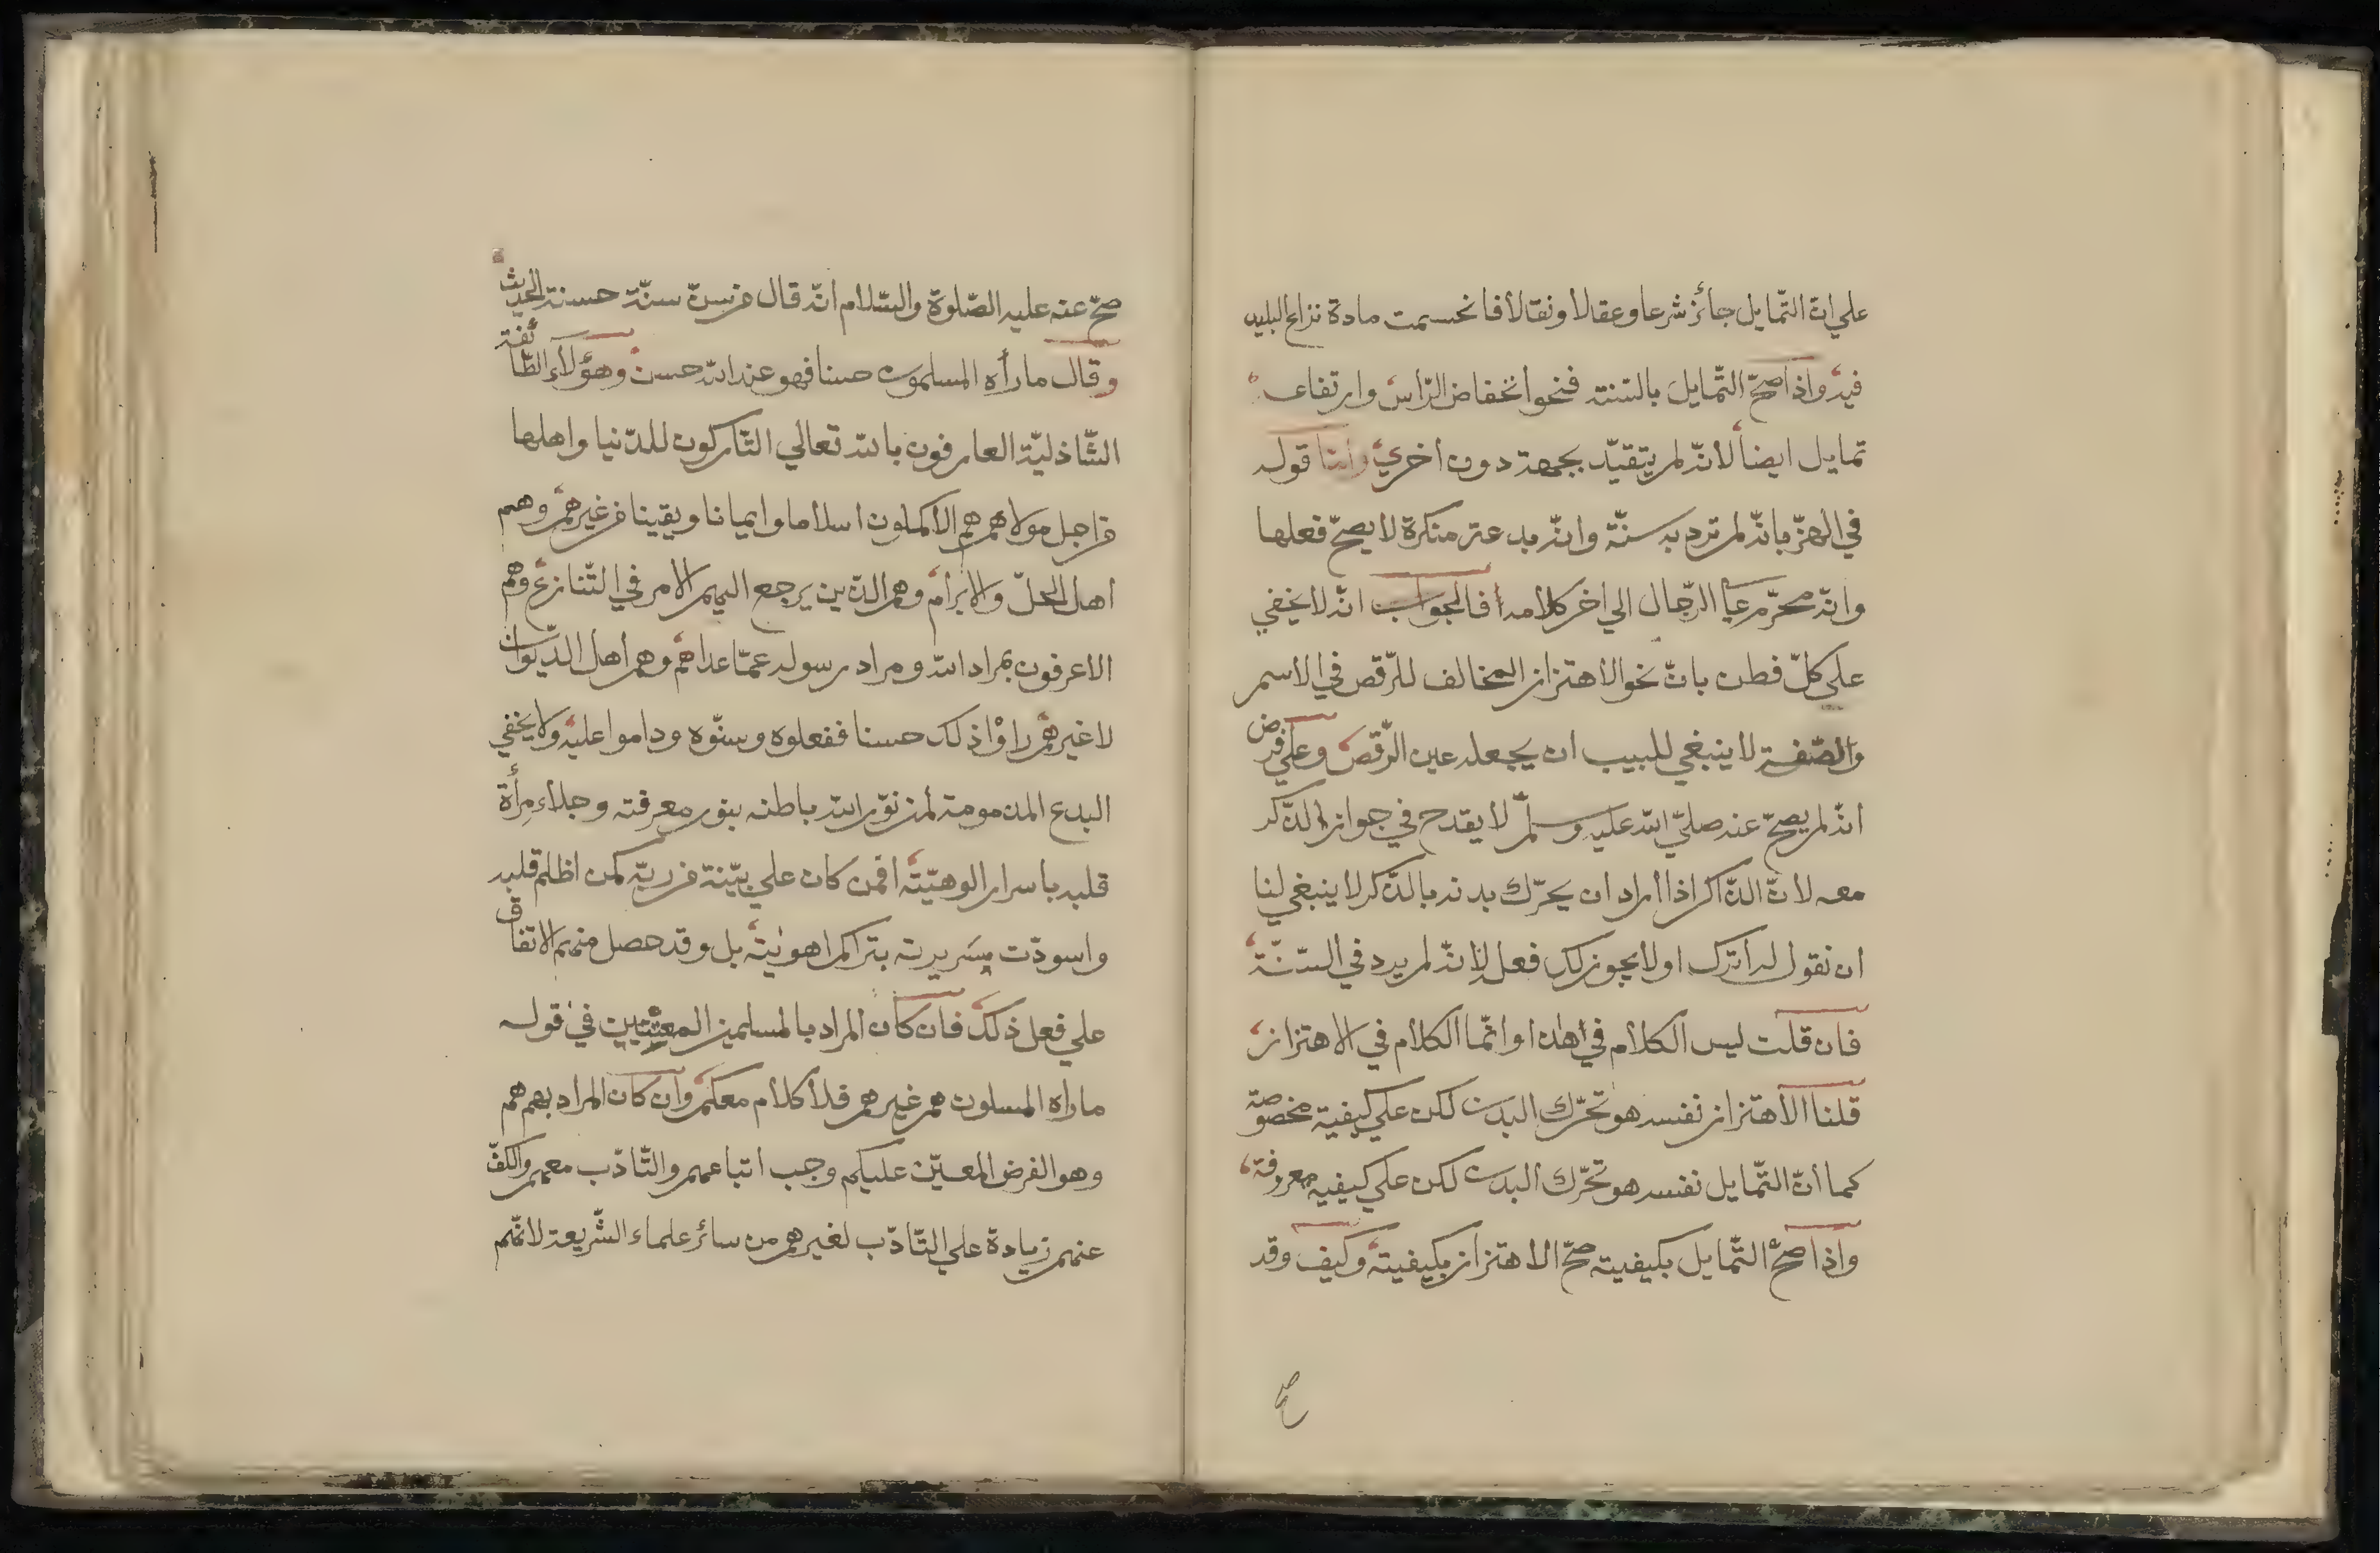 علي ان التّمايل جائز شرعا وعقلا ونقلا فانحسمت مادة نزاع البليد
فيه واذا صحّ التّمايل بالسّنة فنحو انخفاض الرّأس وارتفاعه
تمايل ايضا لانّه لم يتقيّد بجهة دون أخري وامّا قوله
في الهزّ بانّه لم ترد به سنّة وانّه بدعة منكرة لا يصحّ فعلها
وانّه محرّم علي الرّجال الي اخر كلامه فالجواب انّه لا يخفي
علي كلّ فطن بانّ نحو الاهتزاز المخالف للرّقص في الاسم
والصّفة لا ينبغي للبيب ان يجعله عين الرّقص وعلي فرض
انّه لم يصحّ عنه صلّي الله عليه وسلّم لا يقدح في جواز الذّكر
معه لانّ الذّاكر اذا أراد ان يحرّك بدنه بالذّكر لا ينبغي لنا
ان نقول له أترك او لا يجوز لك فعله لانّه لم يرد في السّنّة
فان قلت ليس الكلام في هذا وانّما الكلام في الاهتزاز
قلنا الاهتزاز نفسه هو تحرّك البدن لكن علي كيفية مخصوصة
كما أنّ التّمايل نفسه هو تحرّك البدن لكن علي كيفية معروفة
واذا صحّ التّمايل بكيفيته صحّ الاهتزاز بكيفيته وكيف وقد
صح
صحّ عنه عليه الصّلوة والسّلام انّه قال من سنّ سنّة حسنة الحديث
وقال ما رأه المسلمون حسنا فهو عند الله حسن وهؤلاء الطّائفة
الشّاذليّة العارفون بالله تعالي التّاركون للدّنيا واهلها
من اجل مولاهم هم الاكملون اسلاما وايمانا ويقينا من غيرهم وهم
اهل الحلّ والابرام وهم الذين يرجع اليهم الامر في التّنازع وهم
الاعرفون بمراد الله ومراد رسوله عمّا عداهم وهم أهل الدّيوان
لا غيرهم راؤا ذلك حسنا ففعلوه وسنّوه وداموا عليه ولا يخفي
البدع المذمومة لمن نوّر الله باطنه بنور معرفته وجلاء مرأة
قلبه باسرار الوهيّته افمن كان علي بيّنة من ربّه كمن اظلم قلبه
واسودّت سريرته بتراكم اهوئيته بل وقد حصل منهم الاتفاق
علي فعل ذلك فان كان المراد بالمسلمين المعيّنين في قوله
ما راه المسلون هم غيرهم فلا كلام معكم وان كان المراد بهم هم
وهو الفرض المعيّن عليكم وجب اتباعهم والتّأدّب معهم والكفّ
عنهم زيادة علي التّأدّب لغيرهم من سائر علماء الشّريعة لانّهم